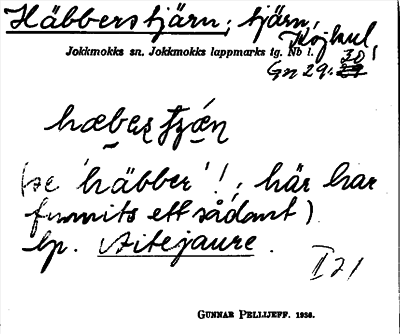 Häbberstjärn; tjärn,
Kojkul,
Jokkmokks sn. Jokkmokks lappmarks tg. Nb l.
30
Gn 29:
hæbeṣtjǽṇ
(se 'häbber'!; här har
funnits ett sådant)
lp. Aitejaure.
I 21
GUNNAR PELLIJEFF. 1936.